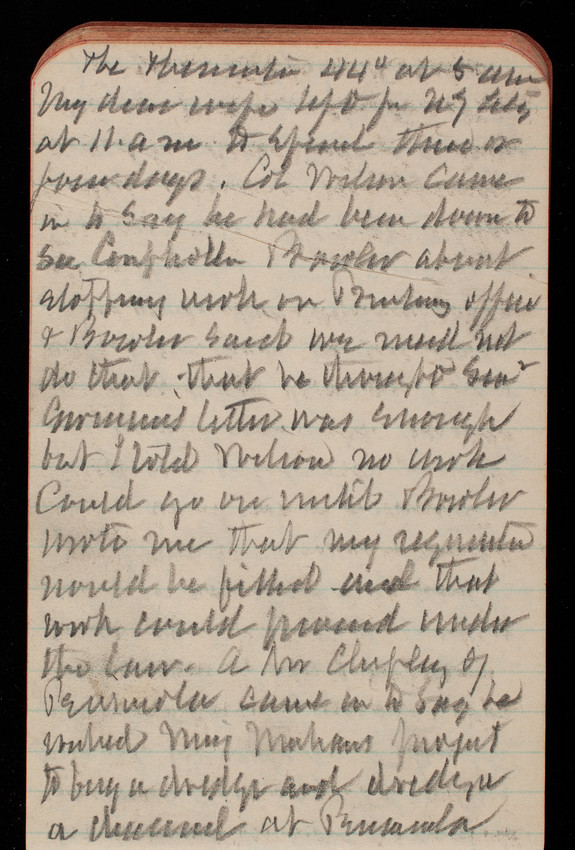 The Thermomtr 44° at 5 am
My dear wife left for NY City
at 11. a m to spend three or
four days. Col Wilson came
in to say he had been down to
see Comptroller Bowler about
stopping work on Printing office
& Bowler said we need not
do that, that he thought Sen'r
Gormans letter was enough
but I told Wilson no work
could go on until Bowler
wrote me that my requests
would be filled and that
work could proceed under
the law. A Mr Chipley of
Pensacola came in to say he
wished Maj Mahans project
to buy a dredge and dredge
a channel at Pensacola